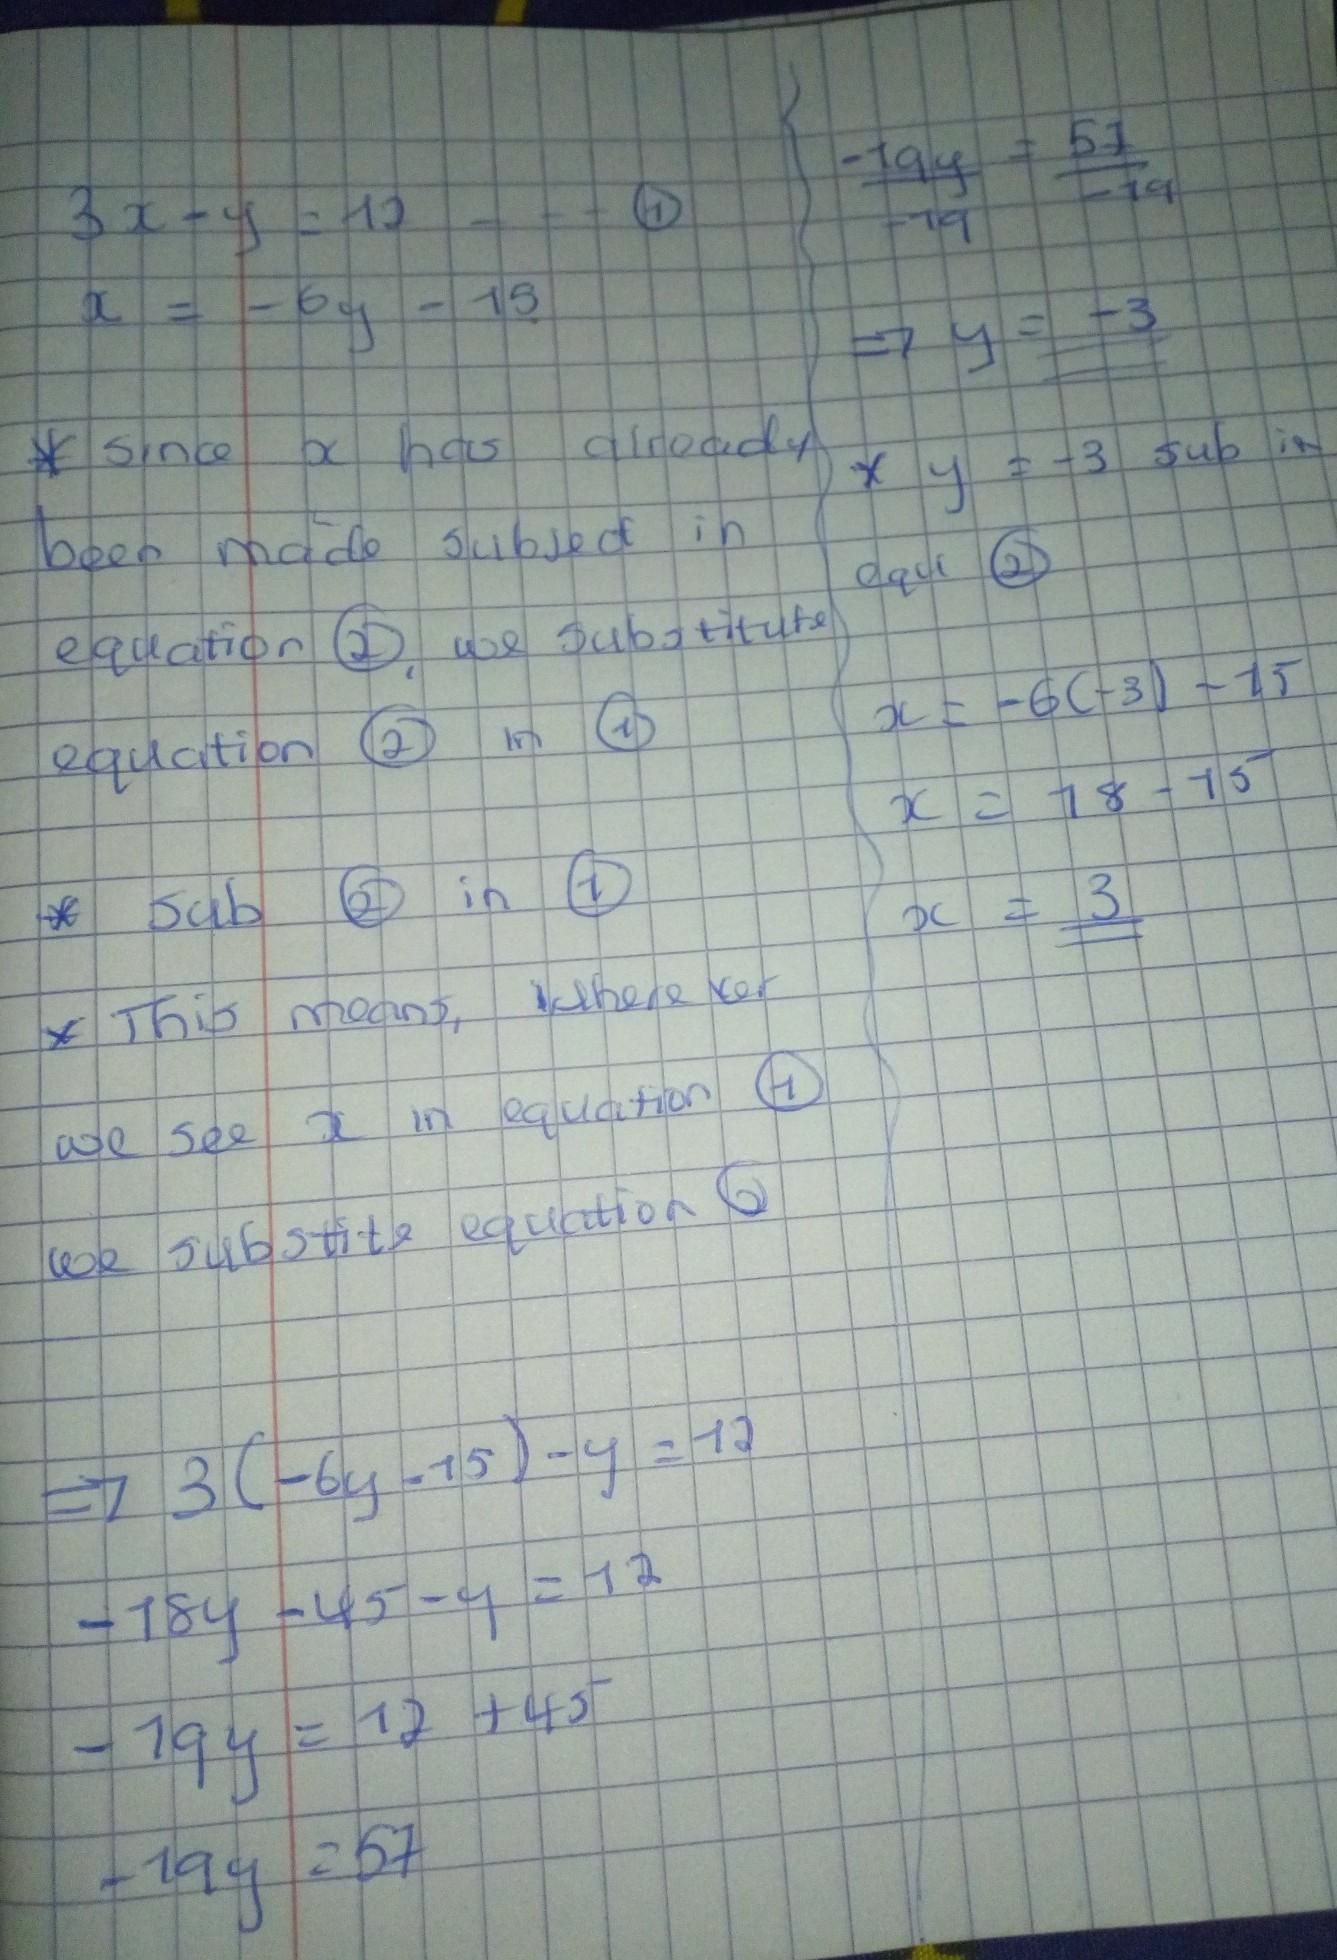 3x - y = 12 - - - ①
x = -6y - 15
* since x has already
been made subject in
equation ②, we substitute
equation ② in ①
* Sub ② in ①
* This means, wherever
we see x in equation ①
we substite equation ②
=> 3(-6y - 15) - y = 12
-18y - 45 - y = 12
-19y = 12 + 45
-19y = 57
-19y = 57
-19 -19
=> y = -3
* y = -3 sub in
equ ②
x = -6(-3) - 15
x = 18 - 15
x = 3